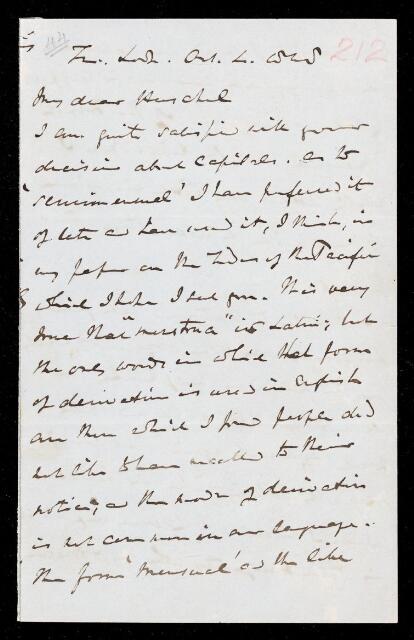 44
212
Tr. Lodge. Oct. 4. 1848
My dear Herschel
I am quite satisfied with your
decision about Capitals. As to
'semimensual' I have preferred it
of late and have used it, I think, in
my paper on the Tides of the Pacific
which I hope I sent you. It is very
true that "menstrua" is Latin; but
the only words in which that form
of derivation is used in English
are those which I find people did
not like to have recalled to their
notice; and the mode of derivation
is not common in our language.
The form 'mensual' as the like